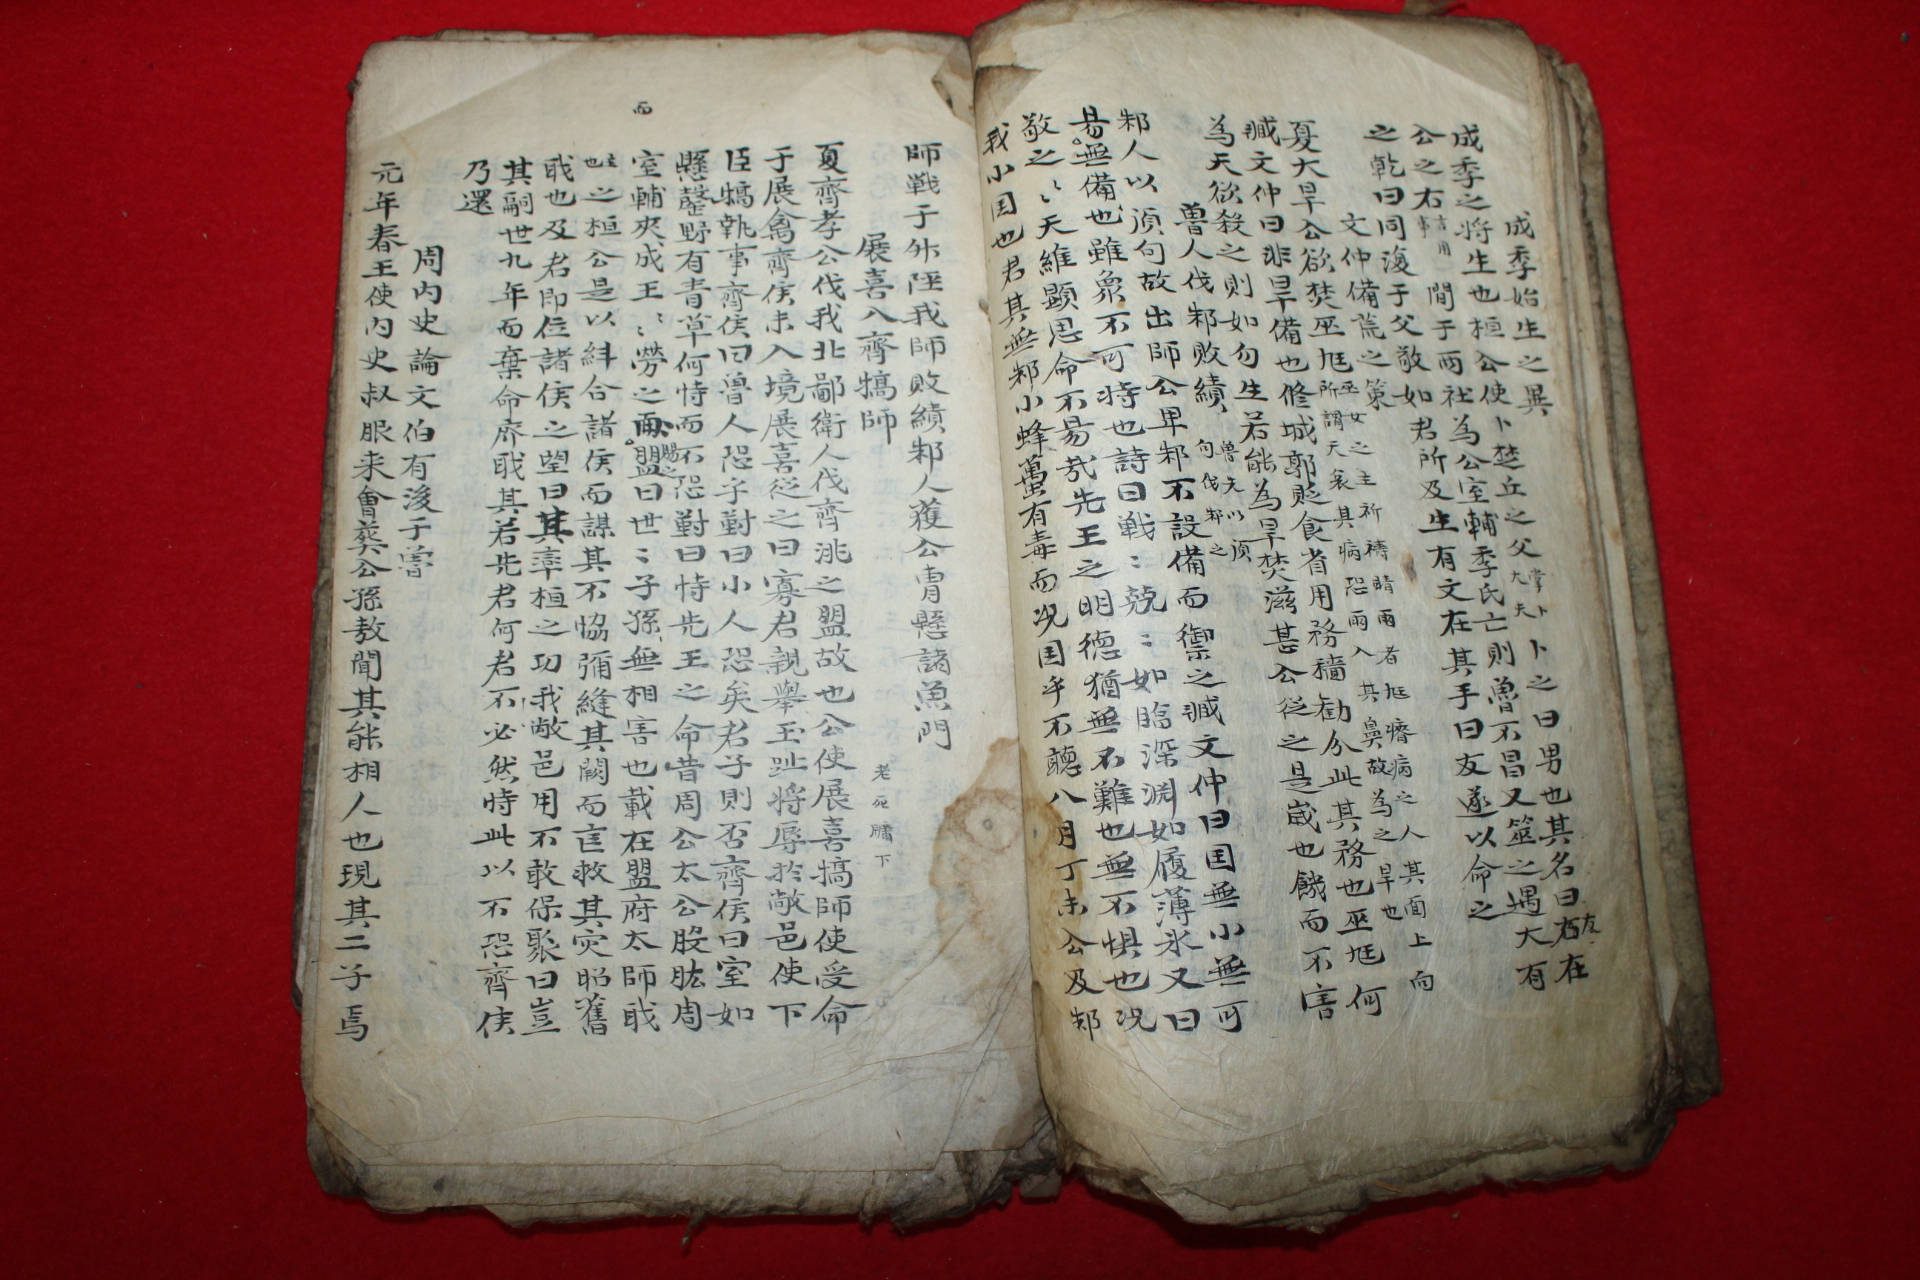 成季始生之異
成季之將生也桓公使卜楚丘之父掌卜大夫卜之曰男也其名曰友在
公之右言用事間于兩社為公室輔季氏亡則魯不昌又筮之遇大有
之乾曰同復于父敬如君所及生有文在其手曰友遂以命之
文仲備荒之策
夏大旱公欲焚巫尫巫女之主祈禱晴雨者尫瘠病之人其面上向所謂天哀其病恐雨入其鼻故為之旱也
臧文仲曰非旱備也修城郭貶食省用務穡勸分此其務也巫尫何
為天欲殺之則如勿生若能為旱焚滋甚公從之是歲也饑而不害
魯人伐邾敗績魯先以須句伐邾之
邾人以須句故出師公卑邾不設備而禦之臧文仲曰国無小無可
易無備也雖衆不可恃也詩曰戦〻兢〻如臨深淵如履薄氷又曰
敬之〻天維顯思命不易哉先王之明德猶無不難也無不惧也况
我小国也君其無邾小蜂蠆有毒而况国乎不聽八月丁未公及邾
師戦于升陘我師敗績邾人獲公冑懸諸魚門
展喜八齊犒師
夏齊孝公伐我北鄙衛人伐齊洮之盟故也公使展喜犒師使受命
于展禽齊侯未入境展喜從之曰寡君親舉玉趾將辱於敝邑使下
臣犒執事齊侯曰魯人恐乎對曰小人恐矣君子則否齊侯曰室如
懸罄野有青草何恃而不恐對曰恃先王之命昔周公太公股肱周
室輔夾成王〻勞之而賜之盟曰世〻子孫無相害也載在盟府太師职
之桓公是以糾合諸侯而謀其不協彌縫其闕而匡救其灾昭舊
职也及君即位諸侯之望曰其率桓之功我敝邑用不敢保聚曰豈
其嗣世九年而棄命廢职其若先君何君不必然恃此以不恐齊侯
乃還
周内史論文伯有後于魯
元年春王使内史叔服来會葬公孫敖聞其能相人也現其二子焉
而